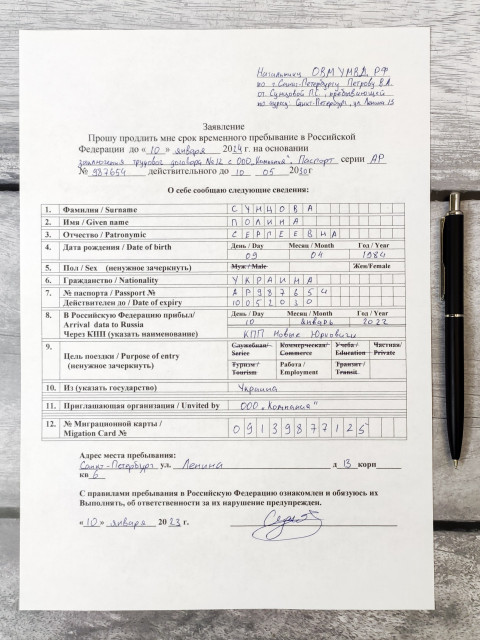 Начальнику ОВМ УМВД РФ
по г. Санкт-Петербургу Петрову В.А.
от Сунцовой П.С., пребывающей
по адресу: Санкт-Петербург, ул. Ленина 13
Заявление
Прошу продлить мне срок временного пребывание в Российской
Федерации до «10» января 2024г. на основании
заключения трудового договора №12 с ООО „Компания“. Паспорт серии АР
№ 987654 действительного до 10 05 2030г
О себе сообщаю следующие сведения:
1. Фамилия / Surname СУНЦОВА
2. Имя / Given name ПОЛИНА
3. Отчество / Patronymic СЕРГЕЕВНА
4. Дата рождения / Date of birth День / Day Месяц / Month Год / Year
09 04 1984
5. Пол / Sex (ненужное зачеркнуть) Муж / Male Жен/Female
6. Гражданство / Nationality УКРАИНА
7. № паспорта / Passport № АР987654
Действителен до / Date of expiry 10052030
8. В Российскую Федерацию прибыл/ День / Day Месяц / Month Год / Year
Arrival data to Russia 10 январь 2022
Через КПП (указать наименование) КПП Новые Юрковичи
9. Цель поездки / Purpose of entry
(ненужное зачеркнуть)
Служебная/ Serice Коммерческая/ Commerce Учеба / Education Частная/ Private
Туризм / Tourism Работа / Employment Транзит / Transit.
10. Из (указать государство) Украина
11. Приглашающая организация / Unvited by ООО „Компания“
12. № Миграционной карты /
Migation Card № 09139877125
Адрес места пребывания:
Санкт-Петербург ул. Ленина д 13 корп
кв 6
С правилами пребывания в Российскую Федерацию ознакомлен и обязуюсь их
Выполнять, об ответственности за их нарушение предупрежден.
«10» января 2023 г.